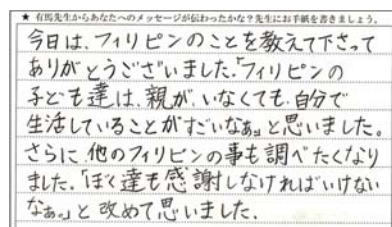 ★ 有馬先生からあなたへのメッセージが伝わったかな？先生にお手紙を書きましょう。
今日は、フィリピンのことを教えて下さって
ありがとうございました。「フィリピンの
子ども達は、親が、いなくても、自分で
生活していることがすごいなぁ。」と思いました。
さらに、他のフィリピンの事も調べたくなり
ました。「ぼく達も感謝しなければいけない
なぁ。」と改めて思いました。